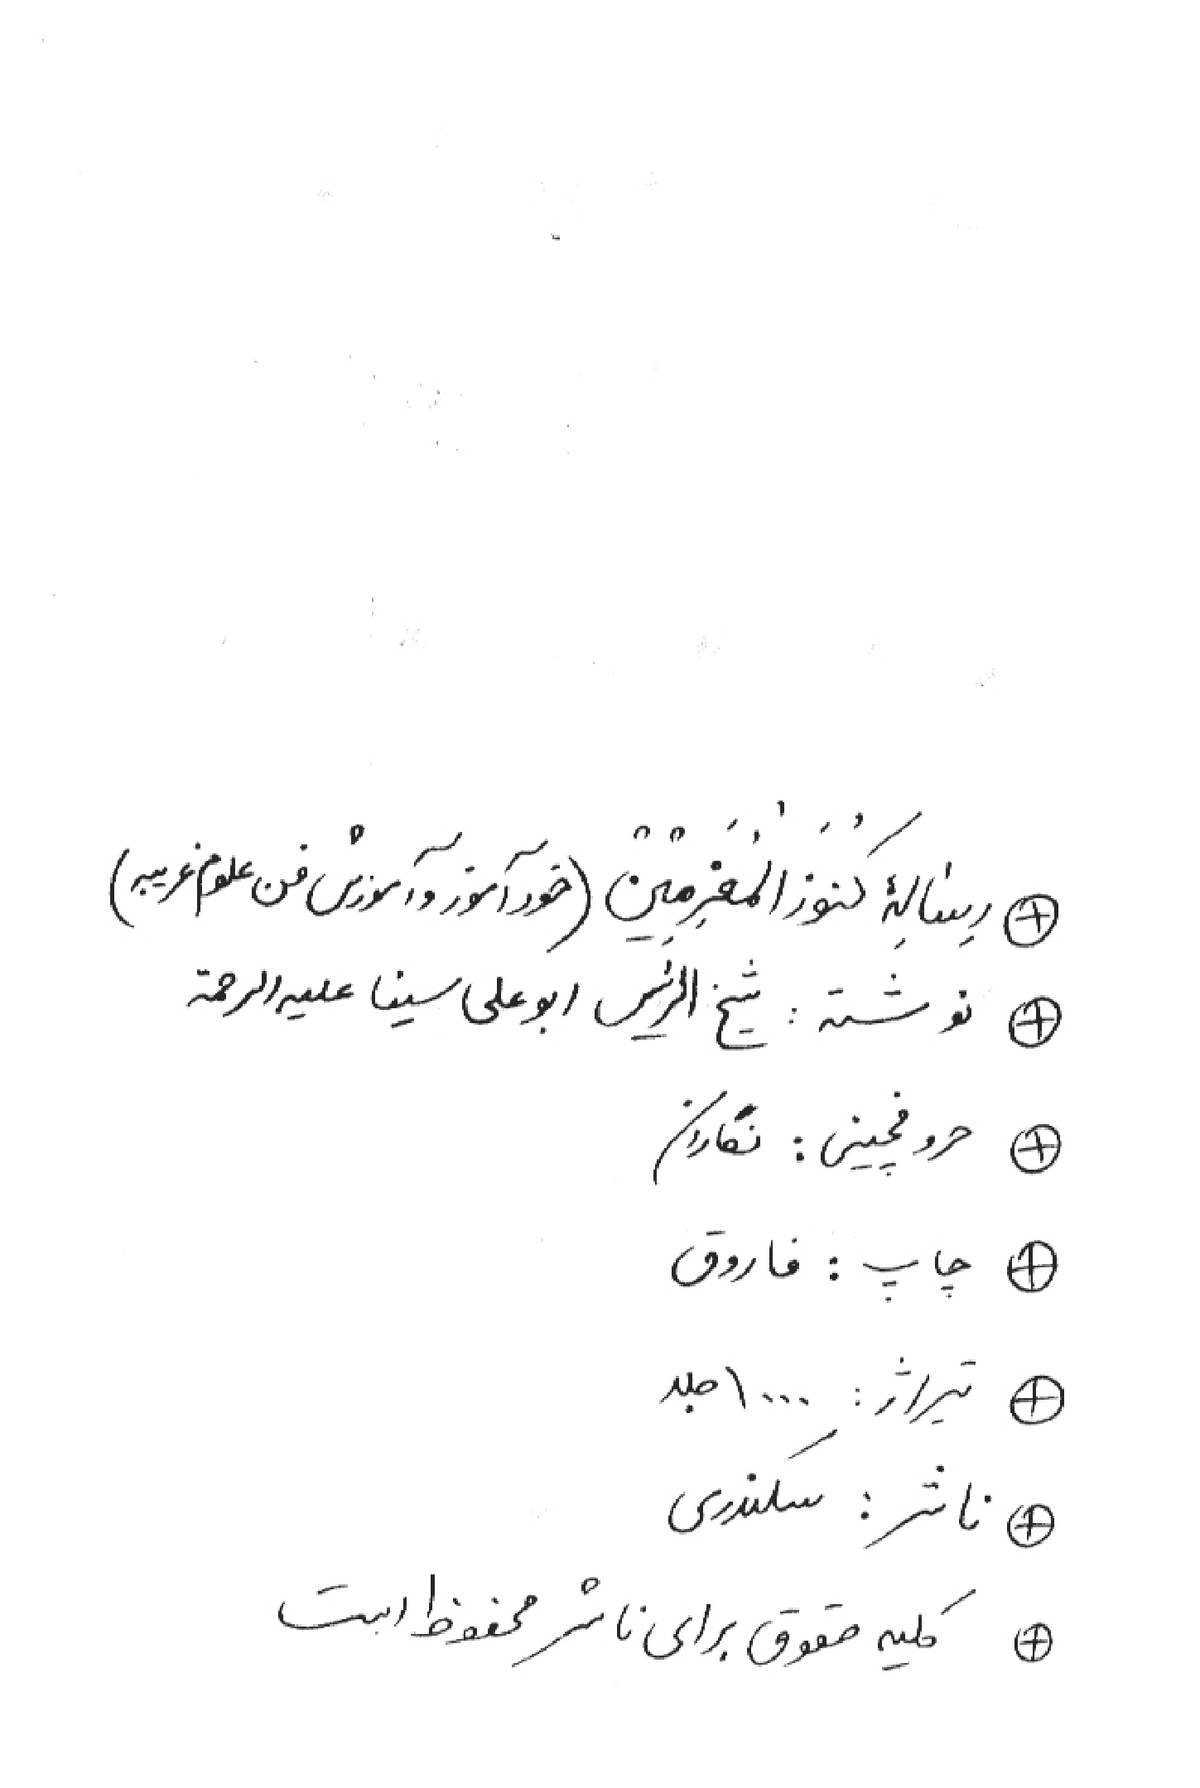 ⊕ رِسٰالِهٔ كُنُوَزُ الْمُغَرِمِیْنْ (خودآموز و آموزش فن علوم غریبه)
⊕ نوشته : شیخ الرئیس ابوعلی سینا علیه الرحمة
⊕ حروفچینی : نگاران
⊕ چاپ : فاروق
⊕ تیراژ : ۱۰۰۰ جلد
⊕ ناشر : سکندری
⊕ کلیه حقوق برای ناشر محفوظ است